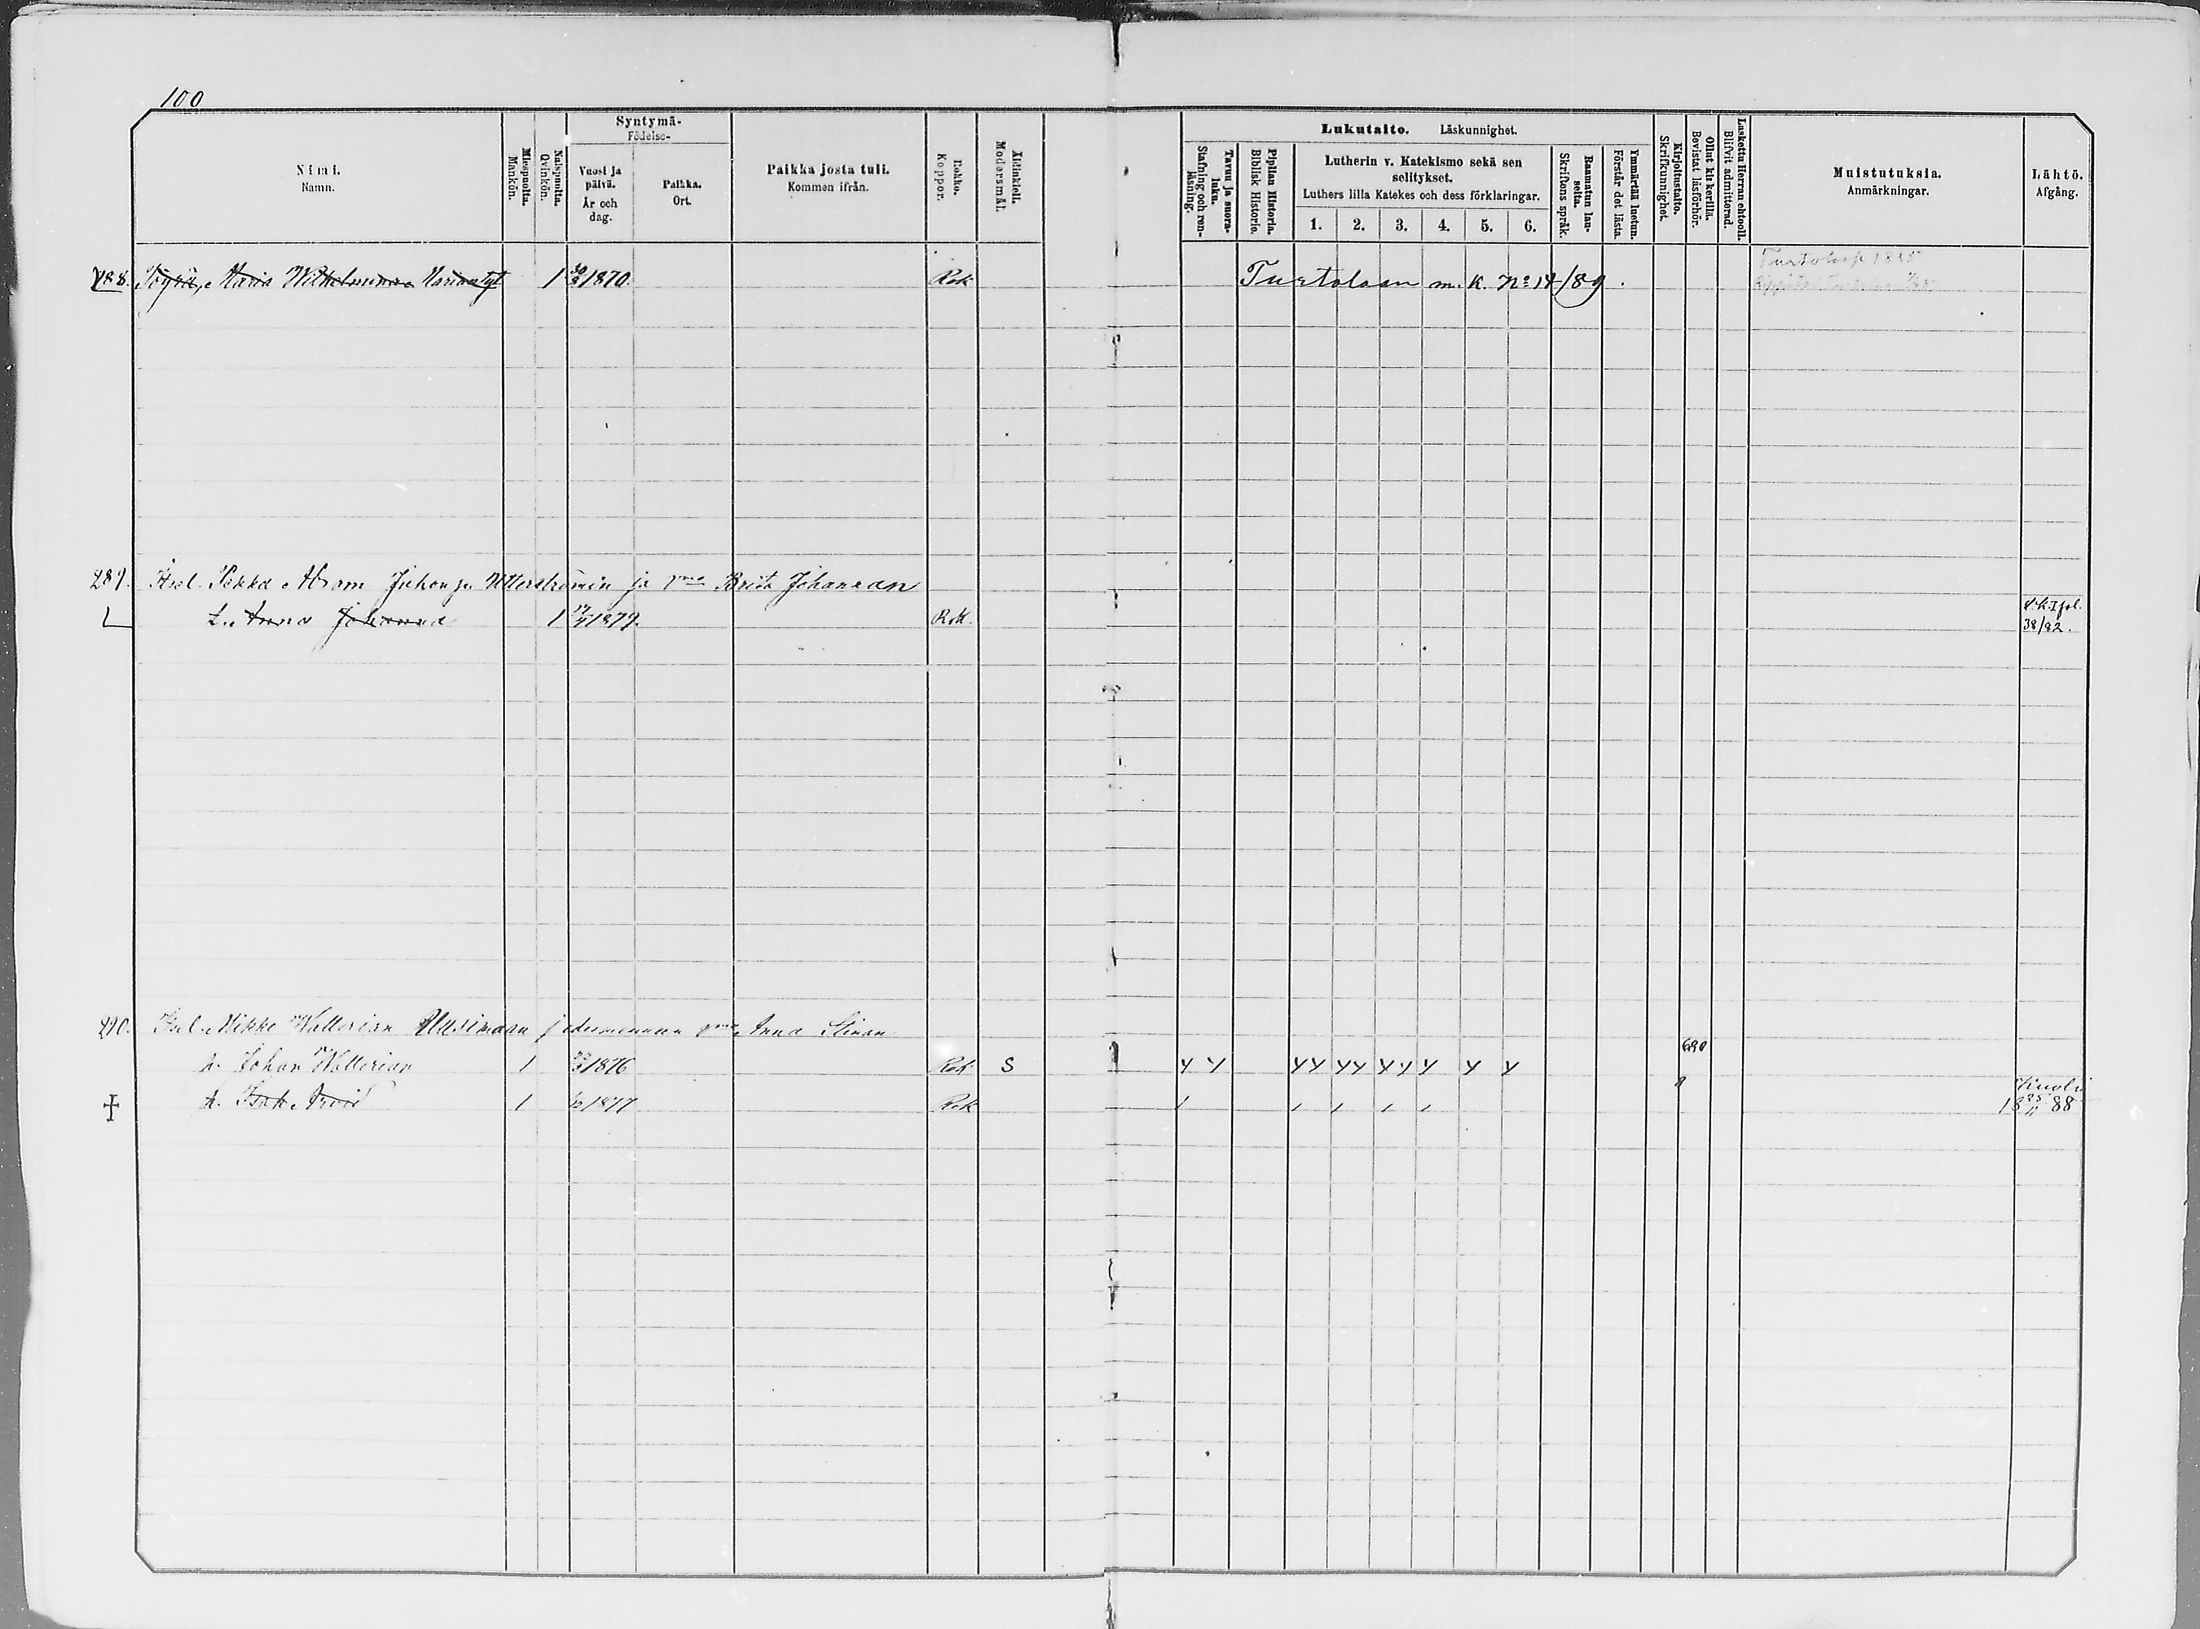 100
Nimi.
Namn.
Miespuolta.
Mankön.
Naispuolta.
Qvinkön.
Syntymä-
Födelse-
Vuosi ja
päivä.
År och
dag.
Paikka.
Ort.
Paikka josta tuli.
Kommen ifrån.
Rokko.
Koppor.
Äidinkieli.
Modersmål.
Lukutaito. Läskunnighet.
Tavuu ja suora-
luku.
Stafning och ren-
läsning.
Piplian Historia.
Biblisk Historie.
Lutherin v. Katekismo sekä sen
selitykset.
Luthers lilla Katekes och dess förklaringar.
1. 2. 3. 4. 5. 6.
Raamatun lau-
seita.
Skriftens språk.
Ymmärtää luetun.
Förstår det lästa.
Kirjoitustaito.
Skrifkunnighet.
Ollut kirkerillä.
Bevistat läsförhör.
Laskettu Herran ehtooll.
Blifvit admitterad.
Muistutuksia.
Anmärkningar.
Lähtö.
Afgång.
Turtolassa 1885
288. Maria Wilhelmina 1 1870. Rok Turtolaan m. k. No 14/89.
289. Itsel. Pekka Abram Juhonp. Utterströmin ja vmo Brita Johannan
t. Anna Johanna 1 1879. Rok. 38/82.
290. Itsel. Mikko Wallerian Uusimaan ja vmo Anna Stinan
p. Johan Wallerian 1 1876 Rok S y y y y y y y y y y y 690
p. Isak Arvid 1 1877 Rok Kuoli
18 25/11 88